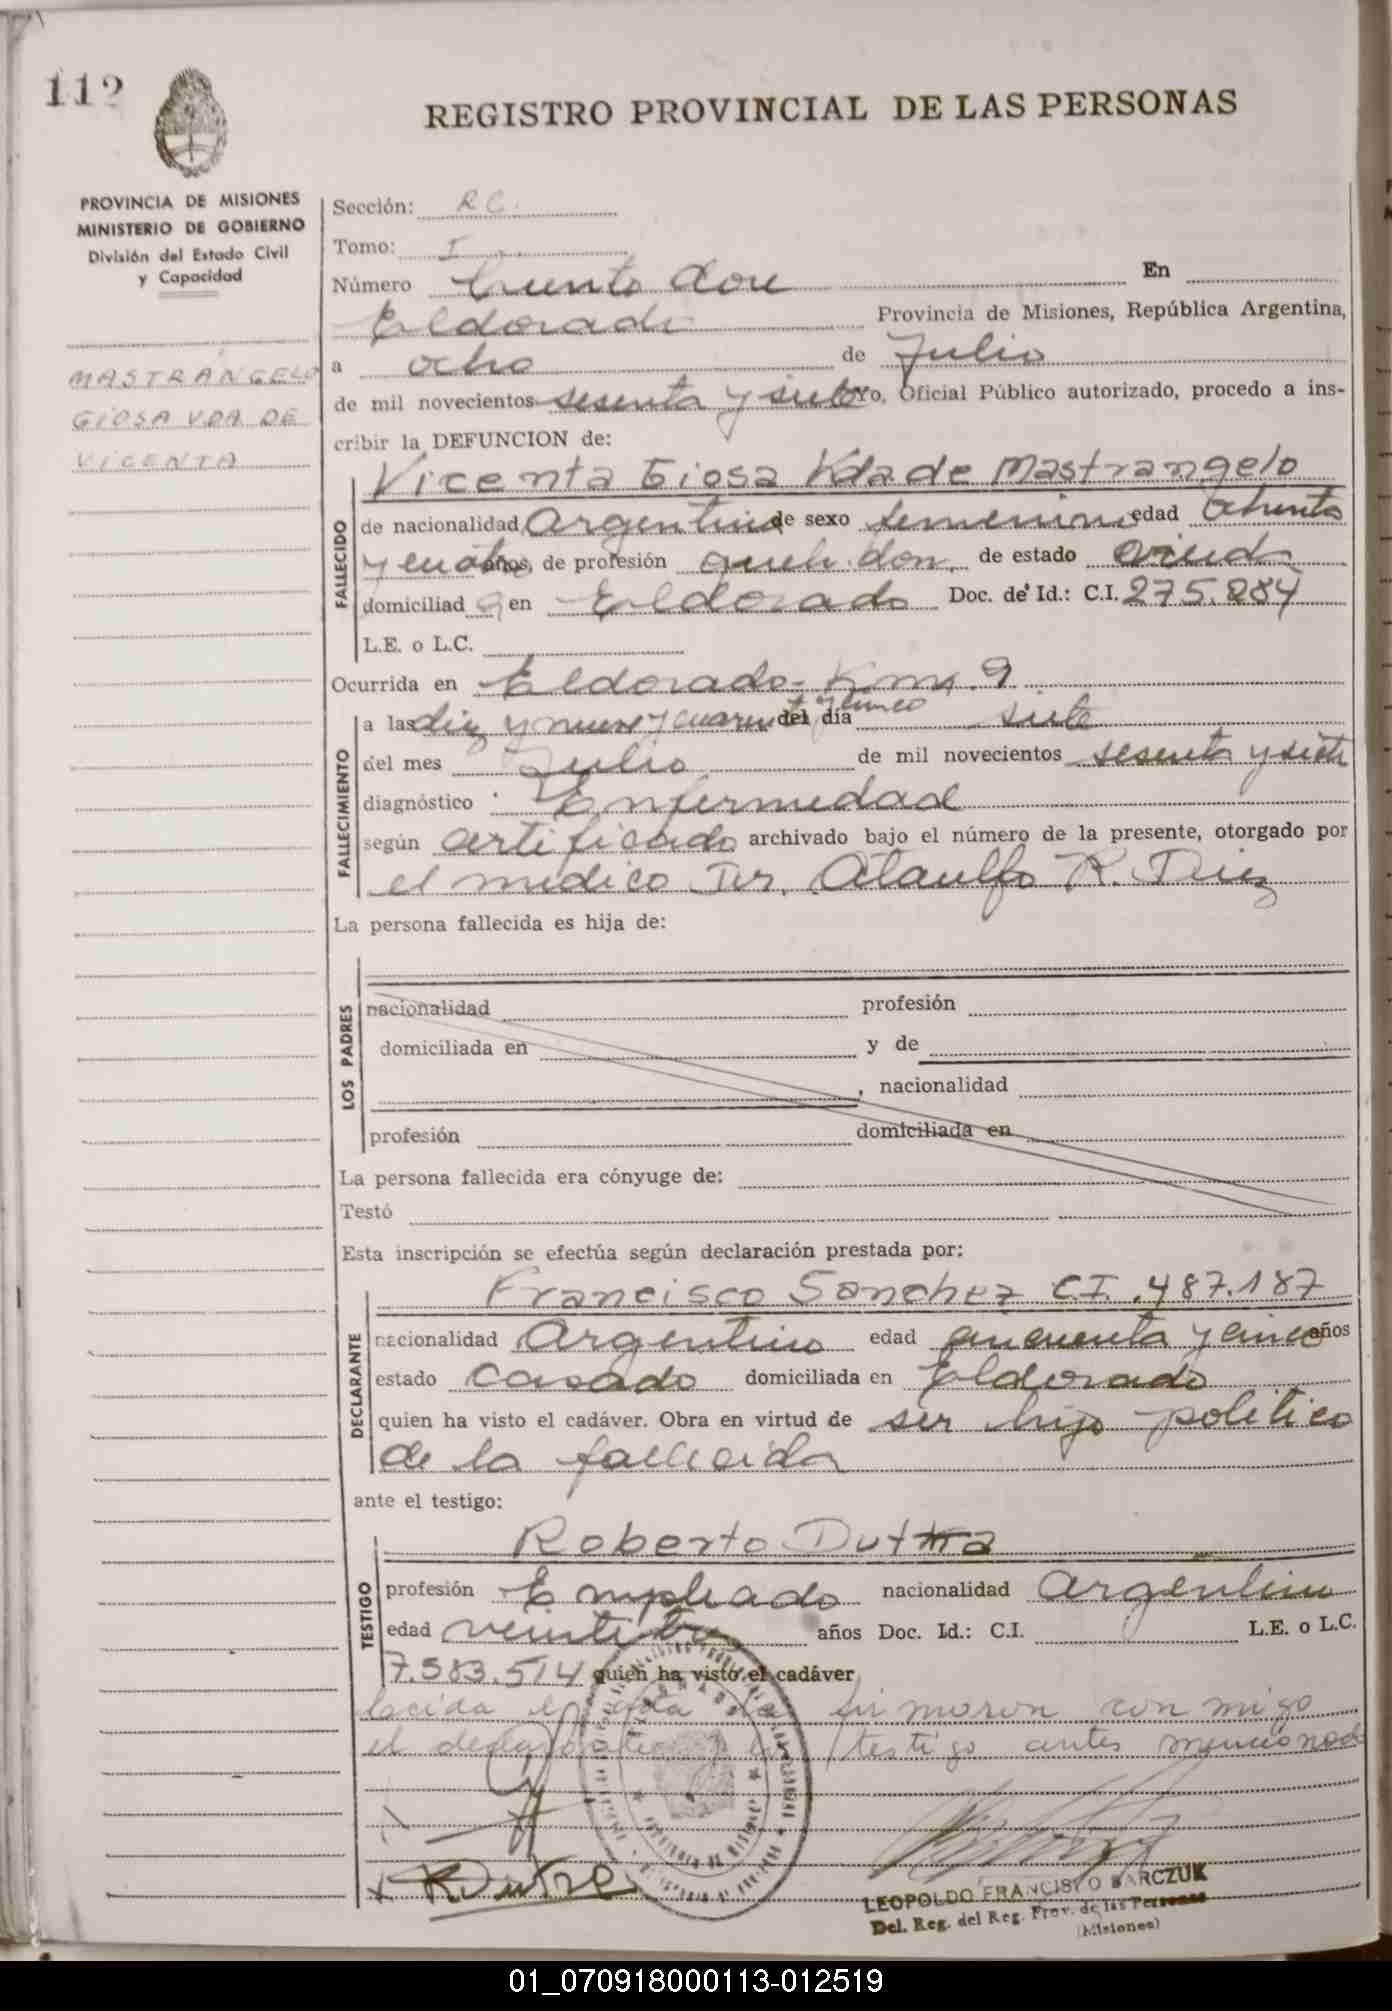 112
REGISTRO PROVINCIAL DE LAS PERSONAS
PROVINCIA DE MISIONES
MINISTERIO DE GOBIERNO
División del Estado Civil
y Capacidad
MASTRÁNGELO
GIOSA VDA DE
VICENTA
Sección: R C.
Tomo: I
Número Ciento doce En
Eldorado Provincia de Misiones, República Argentina,
a ocho de Julio
de mil novecientos sesenta y siete Yo, Oficial Público autorizado, procedo a ins-
cribir la DEFUNCION de:
Vicenta Giosa Vda de Mastrangelo
FALLECIDO
de nacionalidad Argentina de sexo femenino edad ochenta
y cuatro años, de profesión queh. dom. de estado viuda
domiciliad a en Eldorado Doc. de Id.: C.I. 275.284
L.E. o L.C.
Ocurrida en Eldorado - Kms. 9
FALLECIMIENTO
a las diez y nueve y cuarenta y cinco del día siete
del mes Julio de mil novecientos sesenta y siete
diagnóstico Enfermedad
según certificado archivado bajo el número de la presente, otorgado por
el medico Dr. Ataulfo R. Diez
La persona fallecida es hija de:
LOS PADRES
nacionalidad profesión
domiciliada en y de
, nacionalidad
profesión domiciliada en
La persona fallecida era cónyuge de:
Testó
Esta inscripción se efectúa según declaración prestada por:
Francisco Sanchez C.I. 487.187
DECLARANTE
nacionalidad Argentino edad cincuenta y cinco años
estado Casado domiciliada en Eldorado
quien ha visto el cadáver. Obra en virtud de ser hijo politico
de la fallecida
ante el testigo:
Roberto Duttra
TESTIGO
profesión Empleado nacionalidad Argentino
edad veintitres años Doc. Id.: C.I. L.E. o L.C.
7.583.514 quien ha visto el cadáver
Leida el acta la firmaron con migo
el declarante y el testigo antes mencionado
LEOPOLDO FRANCISCO BARCZUK
Del. Reg. del Reg. Prov. de las Personas
(Misiones)
01_070918000113-012519